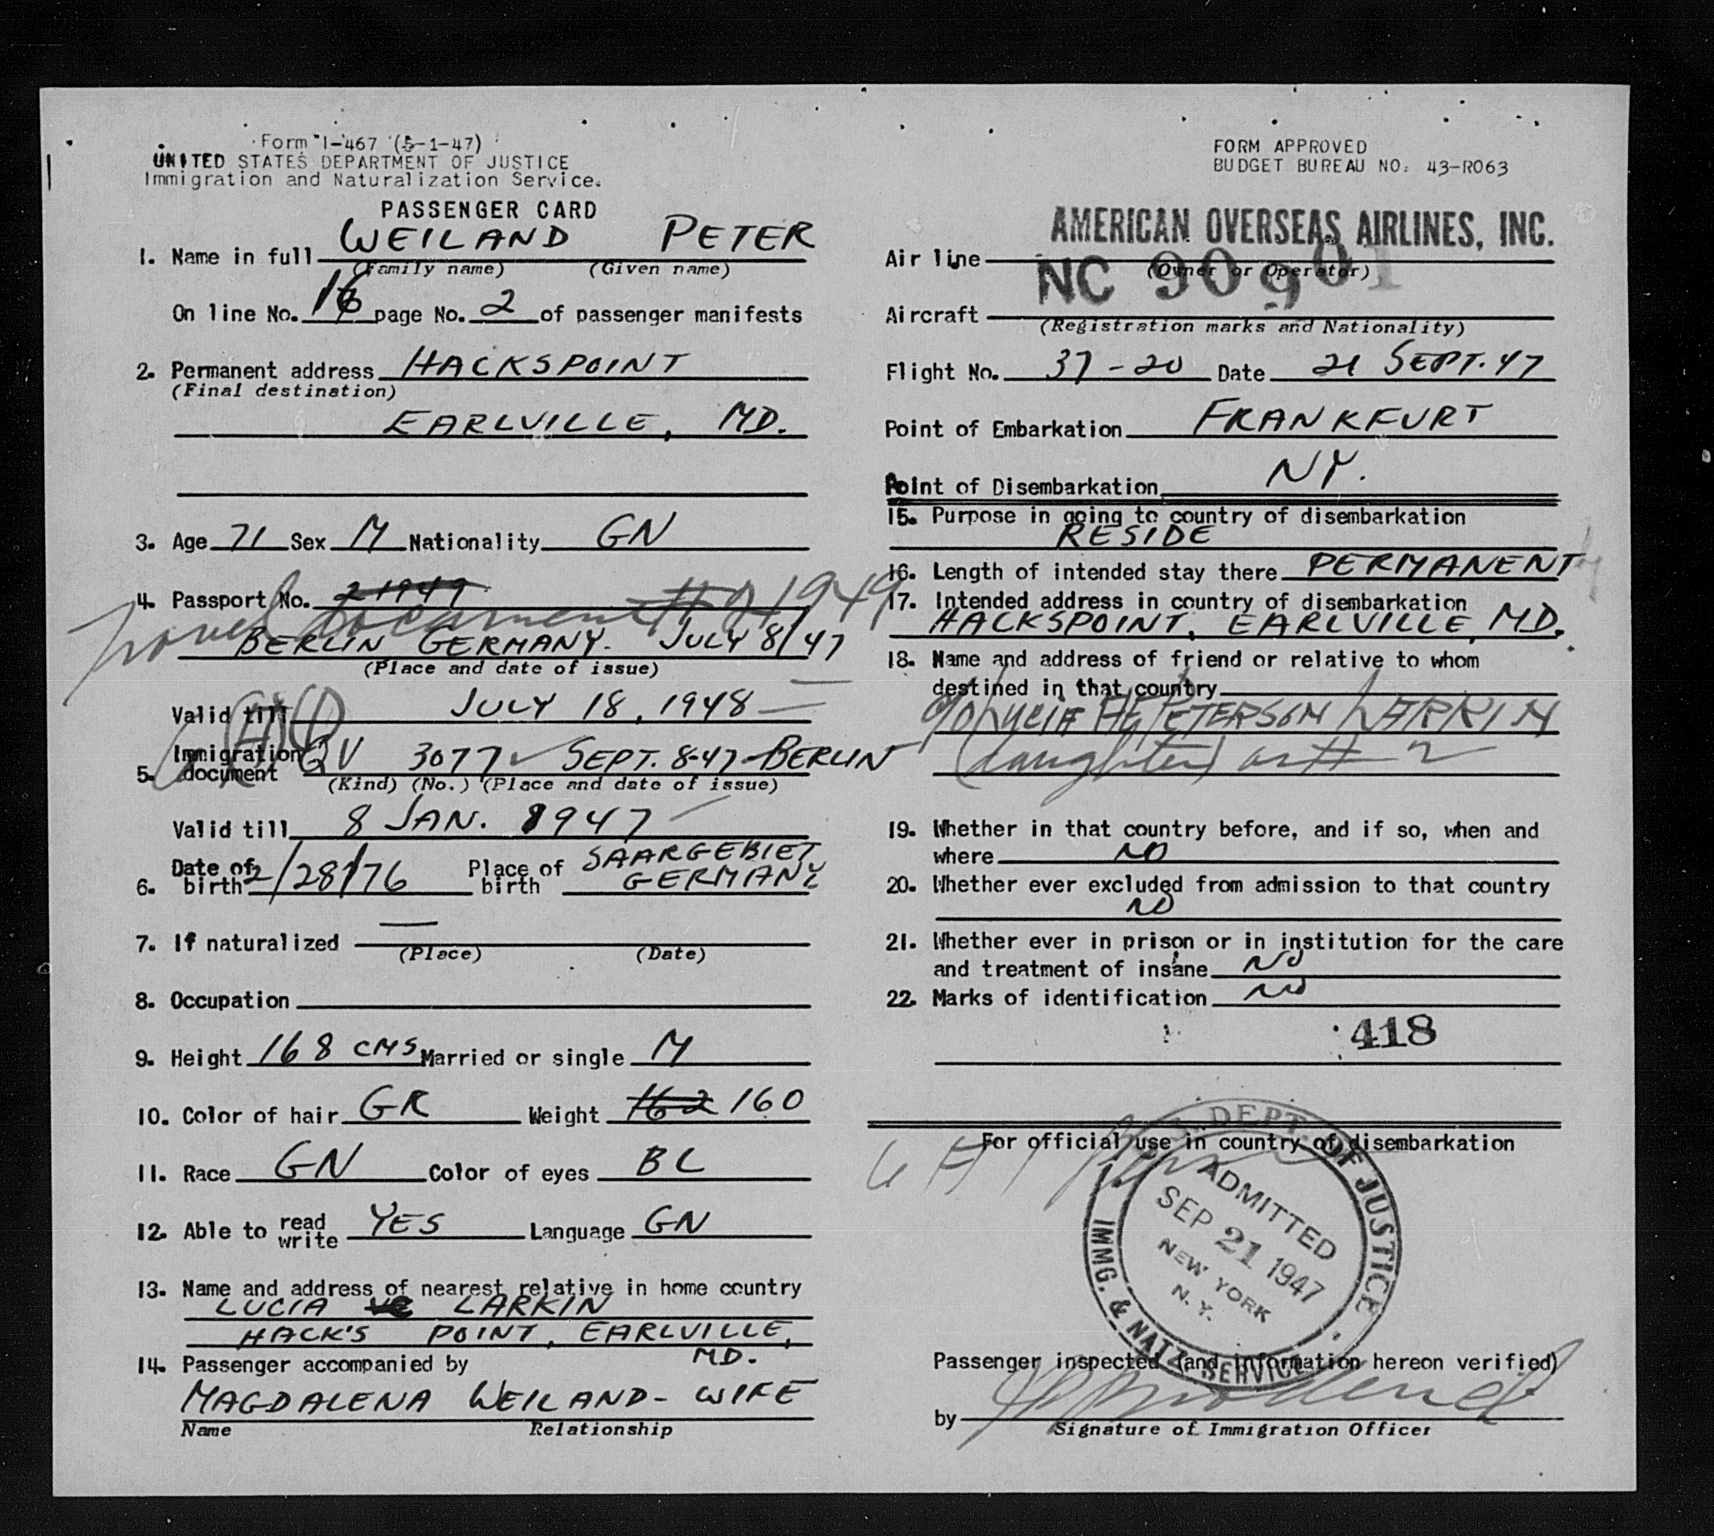 Form I-467 (5-1-47)
UNITED STATES DEPARTMENT OF JUSTICE
Immigration and Naturalization Service.
PASSENGER CARD
1. Name in full WEILAND PETER
(Family name) (Given name)
On line No. 16 page No. 2 of passenger manifests
2. Permanent address HACKSPOINT
(Final destination)
EARLVILLE, MD.
3. Age 71 Sex M Nationality GN
4. Passport No. 21949
travel document # 21949
BERLIN GERMANY. JULY 8/47
(Place and date of issue)
Valid till JULY 18, 1948
5. Immigration document QV 3077 SEPT. 8-47-BERLIN
(Kind) (No.) (Place and date of issue)
Valid till 8 JAN. 1947
6. Date of birth 2/28/76 Place of birth SAARGEBIET
GERMANY
7. If naturalized —
(Place) (Date)
8. Occupation
9. Height 168 CMS Married or single M
10. Color of hair GR Weight 162 160
11. Race GN Color of eyes BL
12. Able to read write YES Language GN
13. Name and address of nearest relative in home country
LUCIA LARKIN
HACK'S POINT, EARLVILLE,
MD.
14. Passenger accompanied by
MAGDALENA WEILAND - WIFE
Name Relationship
FORM APPROVED
BUDGET BUREAU NO. 43-R063
AMERICAN OVERSEAS AIRLINES, INC.
Air line
(Owner or Operator)
NC 90901
Aircraft
(Registration marks and Nationality)
Flight No. 37-20 Date 21 SEPT. 47
Point of Embarkation FRANKFURT
Point of Disembarkation NY.
15. Purpose in going to country of disembarkation
RESIDE
16. Length of intended stay there PERMANENT
17. Intended address in country of disembarkation
HACKSPOINT, EARLVILLE, MD.
18. Name and address of friend or relative to whom
destined in that country
LUCIA PETERSON LARKIN
(daughter) as # 2
19. Whether in that country before, and if so, when and
where NO
20. Whether ever excluded from admission to that country
NO
21. Whether ever in prison or in institution for the care
and treatment of insane NO
22. Marks of identification NO
418
For official use in country of disembarkation
U.S. DEPT. OF JUSTICE
ADMITTED
SEP 21 1947
NEW YORK
N.Y.
IMMG. & NATZ. SERVICE
Passenger inspected (and information hereon verified)
by
Signature of Immigration Officer